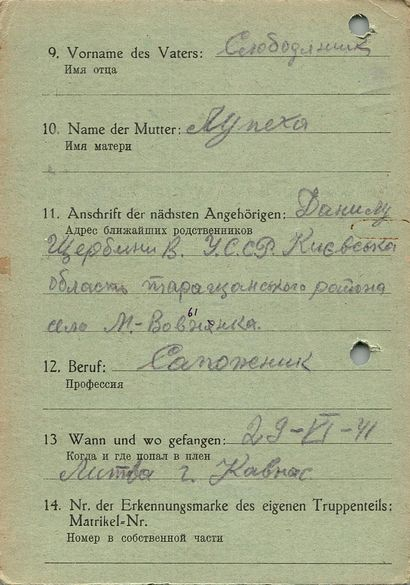 9. Vorname des Vaters: Слободяник
Имя отца
10. Name der Mutter: Лупеха
Имя матери
11. Anschrift der nächsten Angehörigen: Данилу
Адрес ближайших родственников
Щербини В. У.С.С.Р. Києвська
область таращанского района
село М.-Вовнянка.
61
12. Beruf: Сапожник
Профессия
13 Wann und wo gefangen: 29-VI-41
Когда и где попал в плен
Литва г. Кавнас
14. Nr. der Erkennungsmarke des eigenen Truppenteils:
Matrikel-Nr.
Номер в собственной части